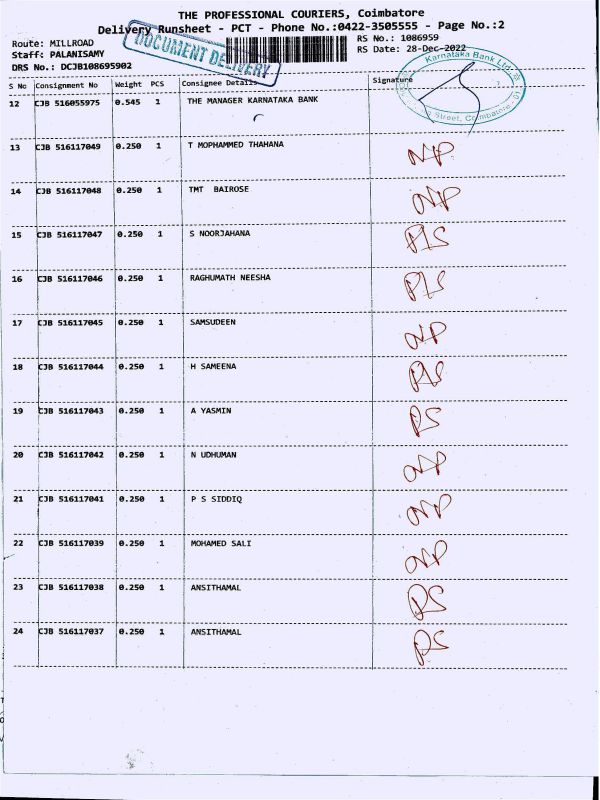 THE PROFESSIONAL COURIERS, Coimbatore
Delivery Runsheet - PCT - Phone No.:0422-3505555 - Page No.:2
Route: MILLROAD
RS No.: 1086959
Staff: PALANISAMY
RS Date: 28-Dec-2022
DRS No.: DCJB108695902
DOCUMENT DELIVERY
S No Consignment No Weight PCS Consignee Details Signature
Karnataka Bank Ltd.
Street, Coimbatore
12 CJB 516055975 0.545 1 THE MANAGER KARNATAKA BANK
13 CJB 516117049 0.250 1 T MOPHAMMED THAHANA NP
14 CJB 516117048 0.250 1 TMT BAIROSE NP
15 CJB 516117047 0.250 1 S NOORJAHANA PLS
16 CJB 516117046 0.250 1 RAGHUMATH NEESHA PLS
17 CJB 516117045 0.250 1 SAMSUDEEN NP
18 CJB 516117044 0.250 1 H SAMEENA PLS
19 CJB 516117043 0.250 1 A YASMIN RS
20 CJB 516117042 0.250 1 N UDHUMAN NP
21 CJB 516117041 0.250 1 P S SIDDIQ NP
22 CJB 516117039 0.250 1 MOHAMED SALI NP
23 CJB 516117038 0.250 1 ANSITHAMAL RS
24 CJB 516117037 0.250 1 ANSITHAMAL RS